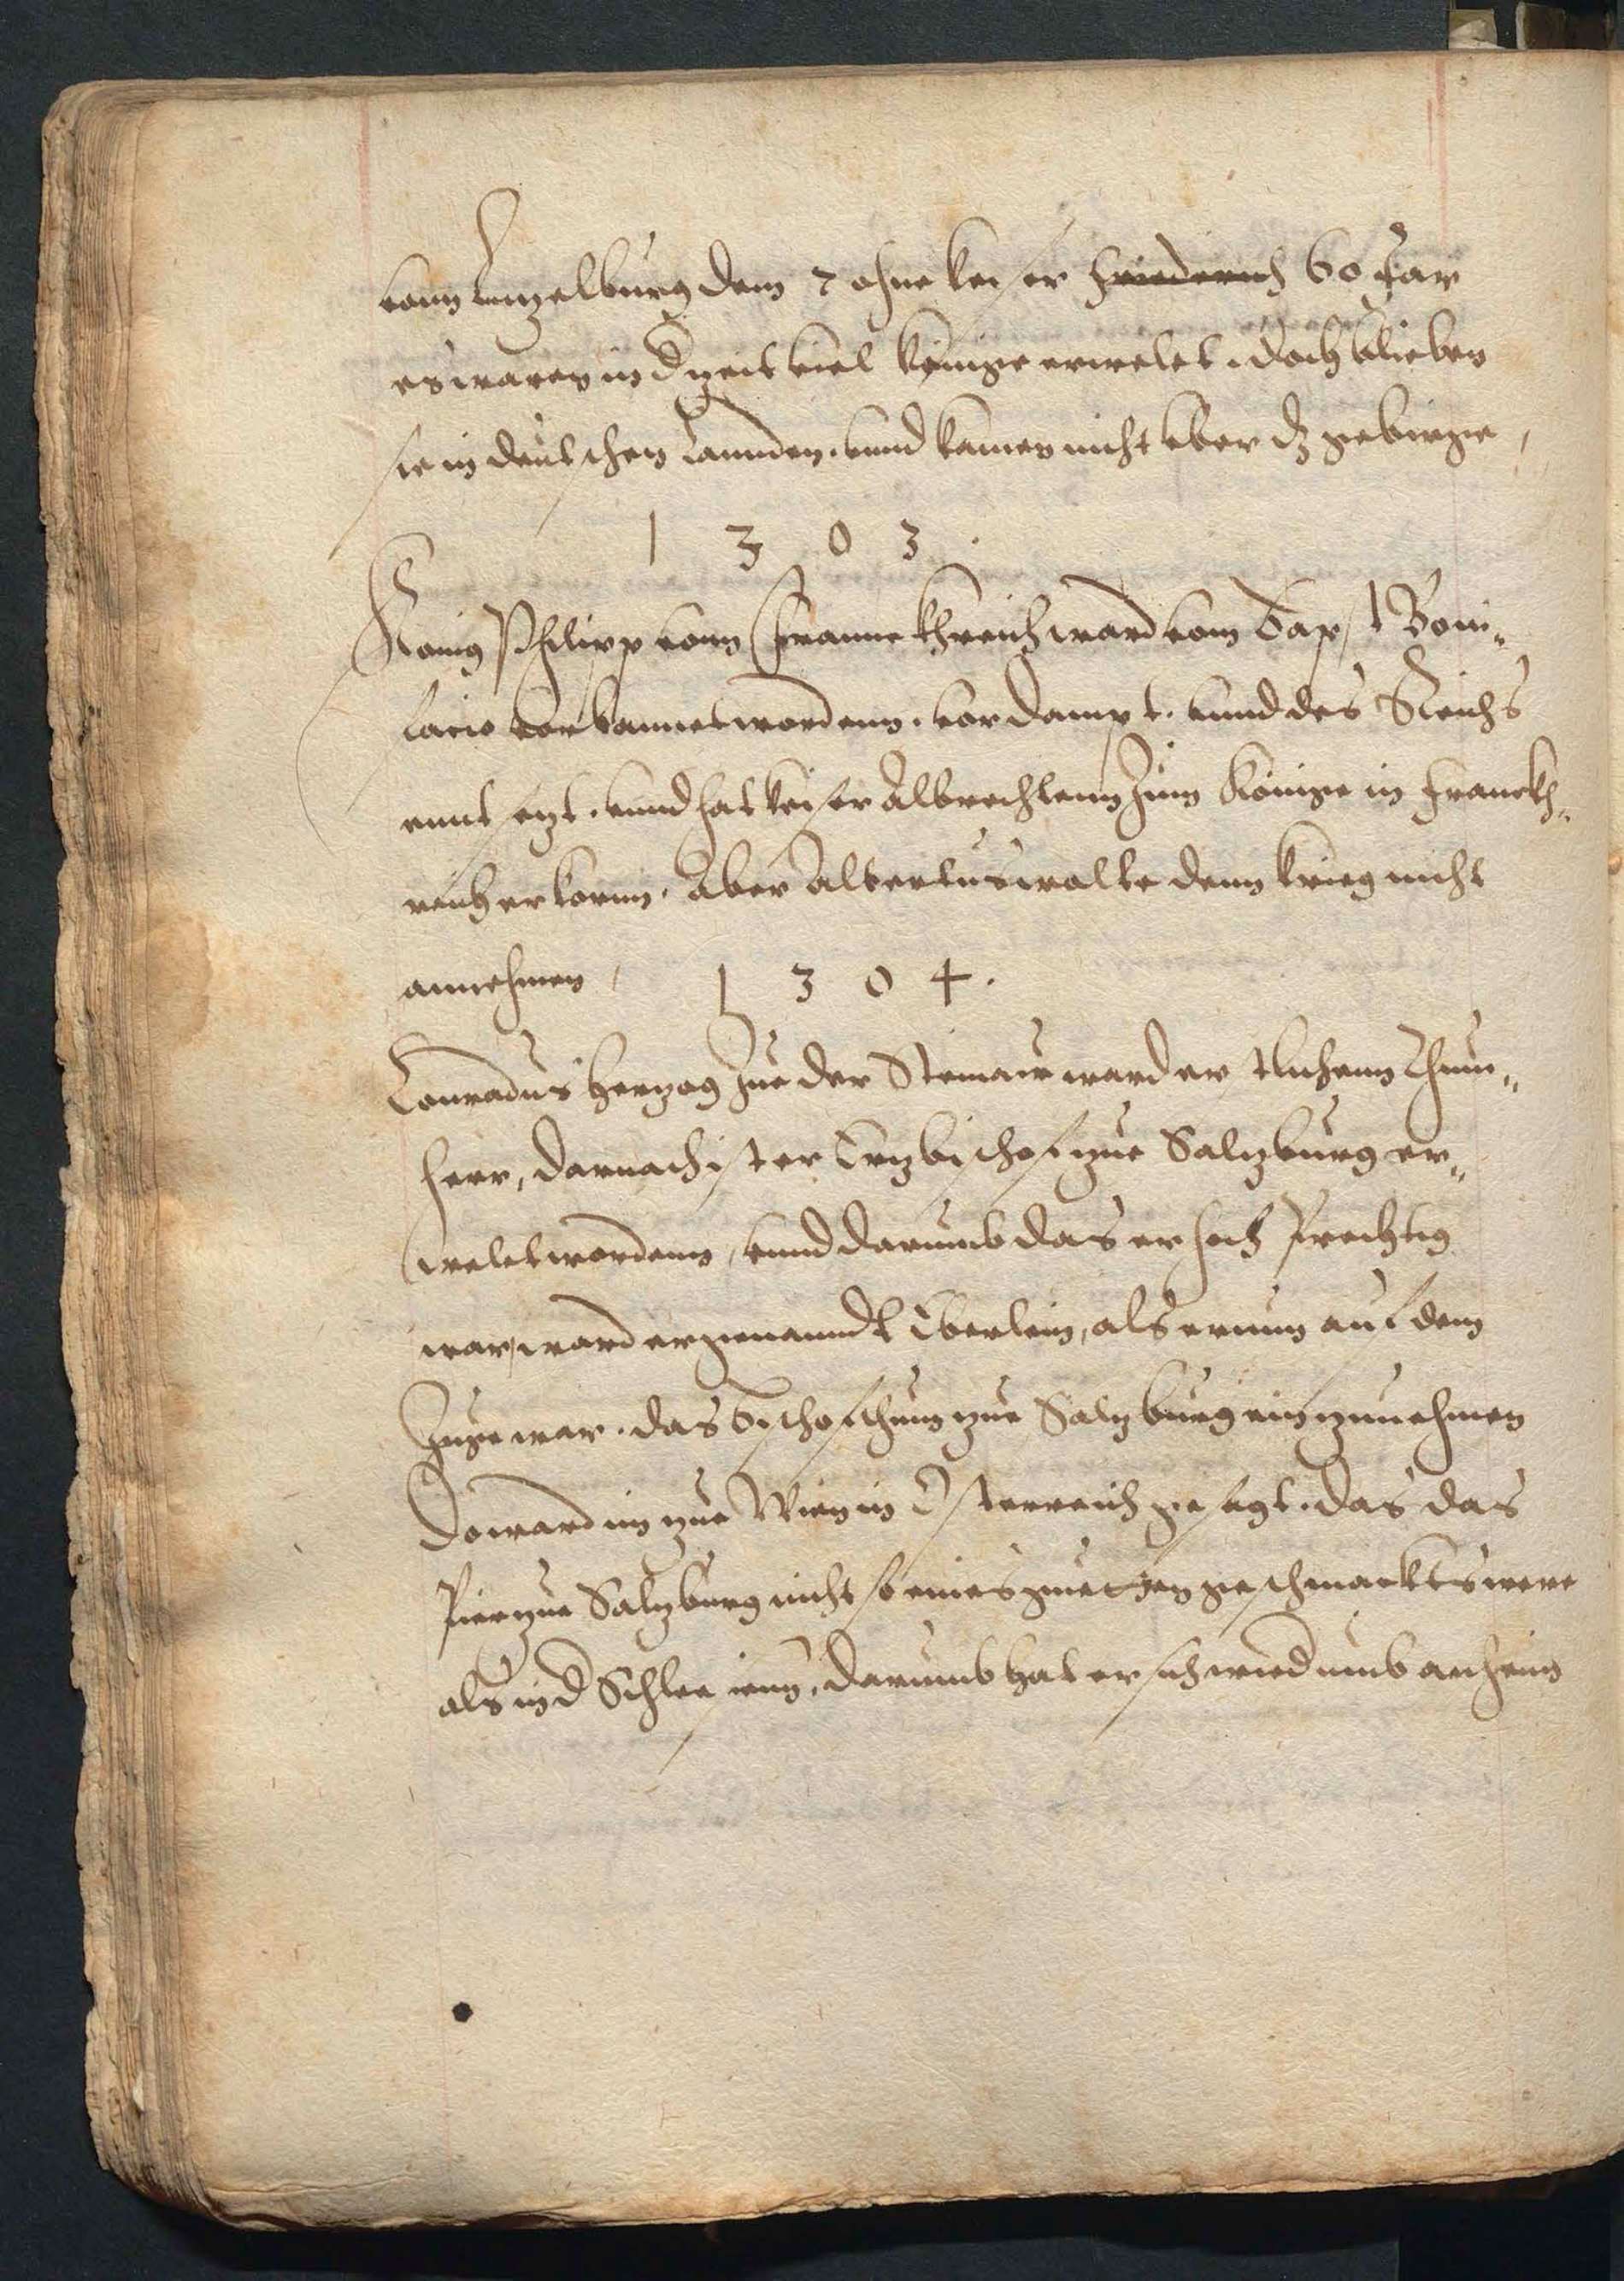 vonn Lutzelburg dem 7 ohne keiser Friederich 60 Jar
es waren in d zeit viel Könige erwelet. doch blieben
sie in deutschen Lannden. vnnd kamen nicht vber dz gebirge,
1 3 0 3 .
König Philipp vonn Franneckhreich ward vom Bapst Boni„
facio vorbannet wordenn. vordampt. vnnd des Reichs
enntsezt. vnnd hat keiser Albrechtenn zum Könige in Franckh„
reich erkorenn. Aber Albertus wolte denn krieg nicht
annehmen, 1 3 0 4 .
Conradus Herzog zue der Steinaw ward erstlichenn Thum„
herr, darnach ist er Erzbischof zue Salzburg er„
welet wordenn, vnnd darumb das er sich prechtig
war, ward er genanndt Eberlein, als er nun auf dem
Zuge war. das Bischofthum zue Salzburg einzunehmen
Do ward im zue Wien in Osterreich gesagt. das das
Pier zue Salzburg nicht so eines guetten geschmackts were
als in d Schlesienn. darumb hat er sich wied umb anheim